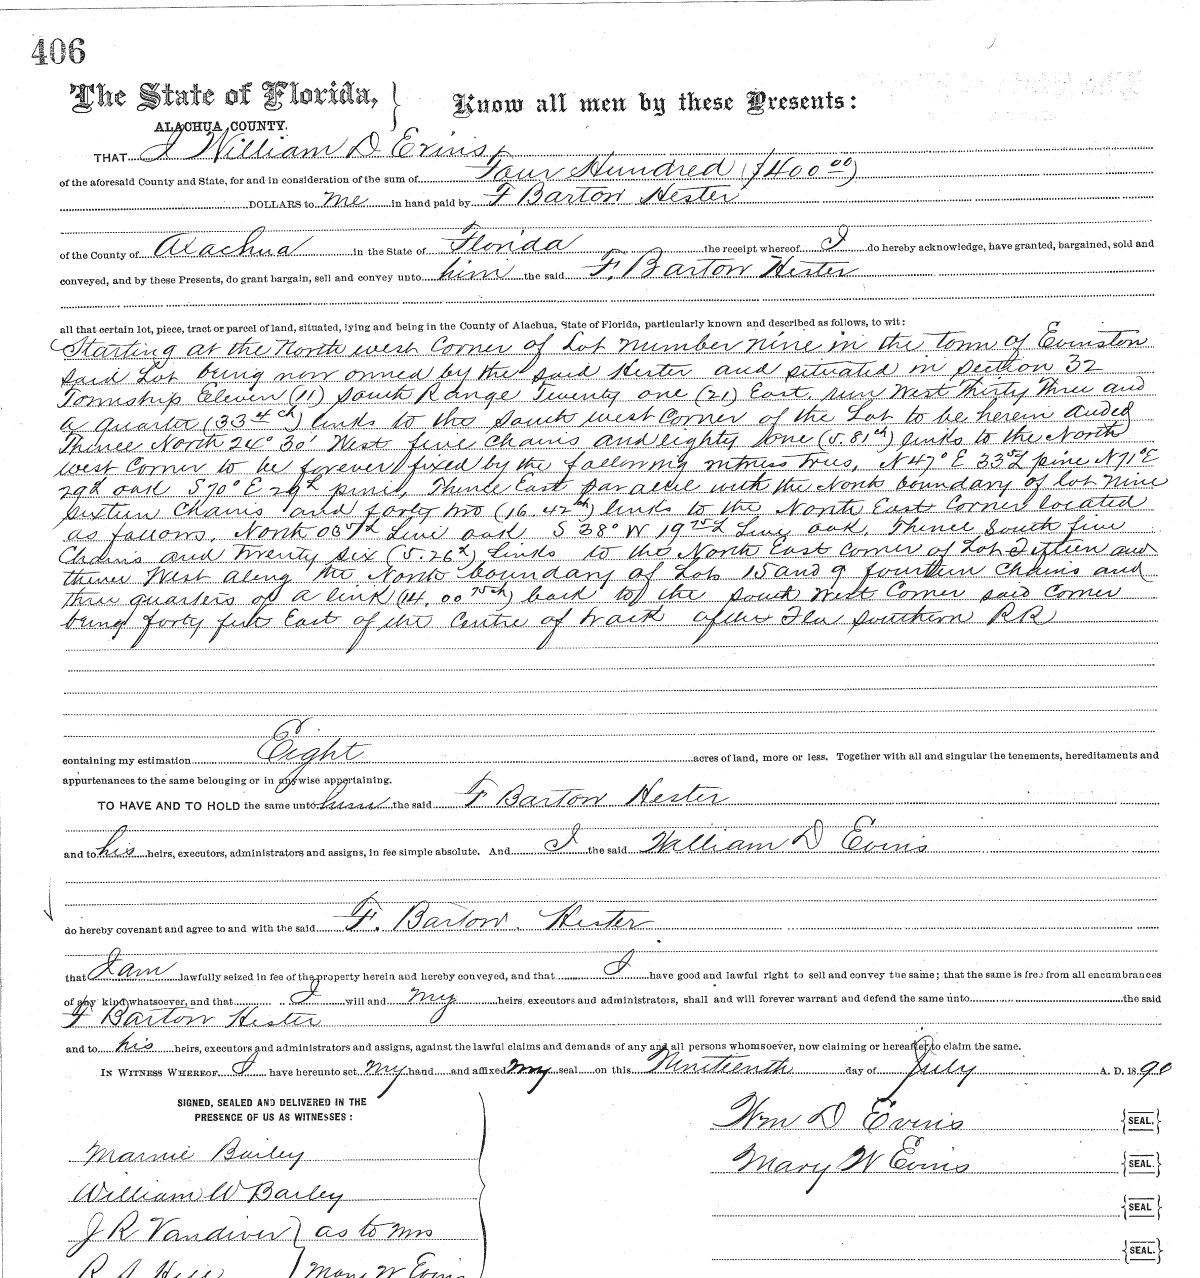 406
The State of Florida, } Know all men by these Presents:
ALACHUA COUNTY.
THAT I William D Evins
of the aforesaid County and State, for and in consideration of the sum of Four Hundred ($400 00)
DOLLARS to me in hand paid by F Barton Hester
of the County of Alachua in the State of Florida the receipt whereof I do hereby acknowledge, have granted, bargained, sold and
conveyed, and by these Presents, do grant bargain, sell and convey unto him the said F. Barton Hester
all that certain lot, piece, tract or parcel of land, situated, lying and being in the County of Alachua, State of Florida, particularly known and described as follows, to wit:
Starting at the North west Corner of Lot number nine in the town of Evinston
said Lot being now owned by the said Hester and situated in Section 32
Township Eleven (11) South Range Twenty one (21) East. run West Thirty Three and
a quarter links to the South west Corner of the Lot to be herein deeded
Thence North 24° 30' West five Chains and eighty one (5.81 ch) links to the North
west Corner to be forever fixed by the following witness trees, N 47° E pine N 71° E
oak S 70° E pine, Thence East parallel with the North boundary of lot nine
Sixteen Chains and forty two (16.42 ch) links to the North East Corner located
as follows, North Live oak S 38° W Live oak, Thence South five
Chains and Twenty Six links to the North East Corner of Lot Fifteen and
thence West along the North boundary of Lots 15 and 9 fourteen Chains and
three quarters of a link back to the South West Corner said Corner
being forty feet East of the Centre of track Fla Southern RR
containing my estimation Eight acres of land, more or less. Together with all and singular the tenements, hereditaments and
appurtenances to the same belonging or in anywise appertaining.
TO HAVE AND TO HOLD the same unto him the said F Barton Hester
and to his heirs, executors, administrators and assigns, in fee simple absolute. And I the said William D Evins
do hereby covenant and agree to and with the said F. Barton. Hester
that I am lawfully seized in fee of the property herein and hereby conveyed, and that I have good and lawful right to sell and convey the same; that the same is free from all encumbrances
of any kind whatsoever, and that I will and my heirs, executors and administrators, shall and will forever warrant and defend the same unto the said
F Barton Hester
and to his heirs, executors and administrators and assigns, against the lawful claims and demands of any and all persons whomsoever, now claiming or hereafter to claim the same.
IN WITNESS WHEREOF I have hereunto set my hand and affixed my seal on this Nineteenth day of July A. D. 1890
SIGNED, SEALED AND DELIVERED IN THE
PRESENCE OF US AS WITNESSES:
Wm D Evins {SEAL.}
Mary W Evins {SEAL.}
{SEAL}
{SEAL.}
Mamie Bailey
William W Bailey
J R Vandiver } as to Mrs
Mary W Evins